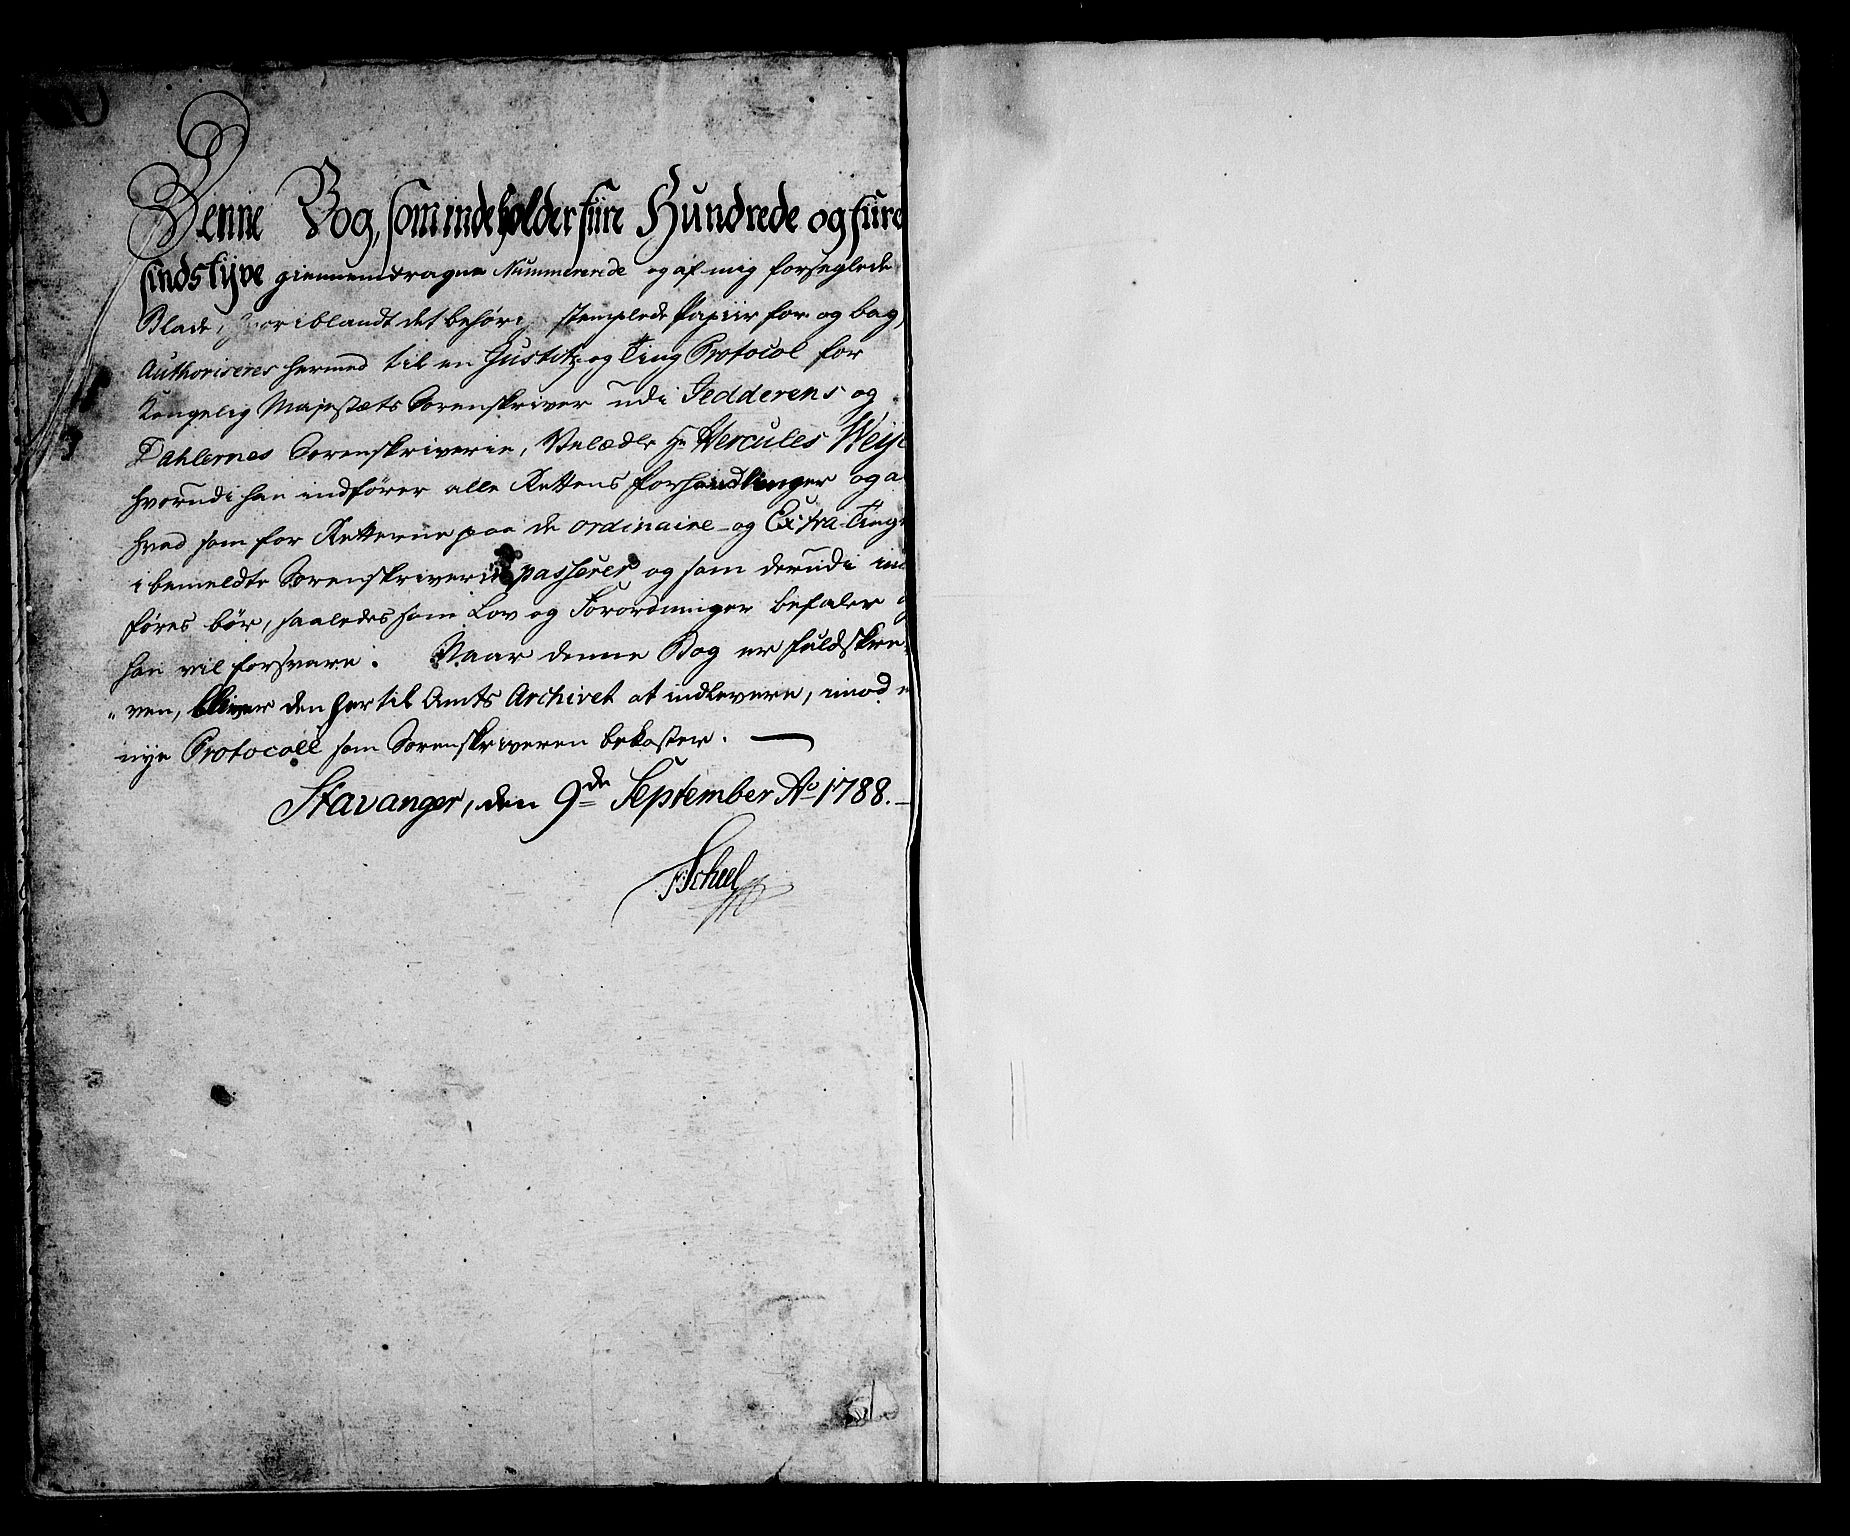 Denne Bog, som indeholder fiire Hundrede og fiire
sindstyve giennemdragne Nummererede og af mig forseglede
Blade, hvoriblandt det behøri stemplede Papiir for og bag,
Authoriseres hermed til en Justitz og Ting Protocol for
Kongelig Majestæts Sorenskriver udi Jedderens og
Dahlernes Sorenskriverie, Velædle Hr Hercules Weyle
hvorudi han indfører alle Rettens forhandlinger og a
hvad som for Retterne paa de ordinaire og Extra Ting
i bemeldte Sorenskriverie passerer, og som derudi ind
føres bør, saaledes som Lov og Forordninger befaler o
han vil forsvare. Naar denne Bog er fuldskre
"ven, bliver den her til Amts Archivet at indlevere, imod e
nye Protocoll som Sorenskriveren bekoster. —
Stavanger, den 9de September Ao 1788.
Scheel